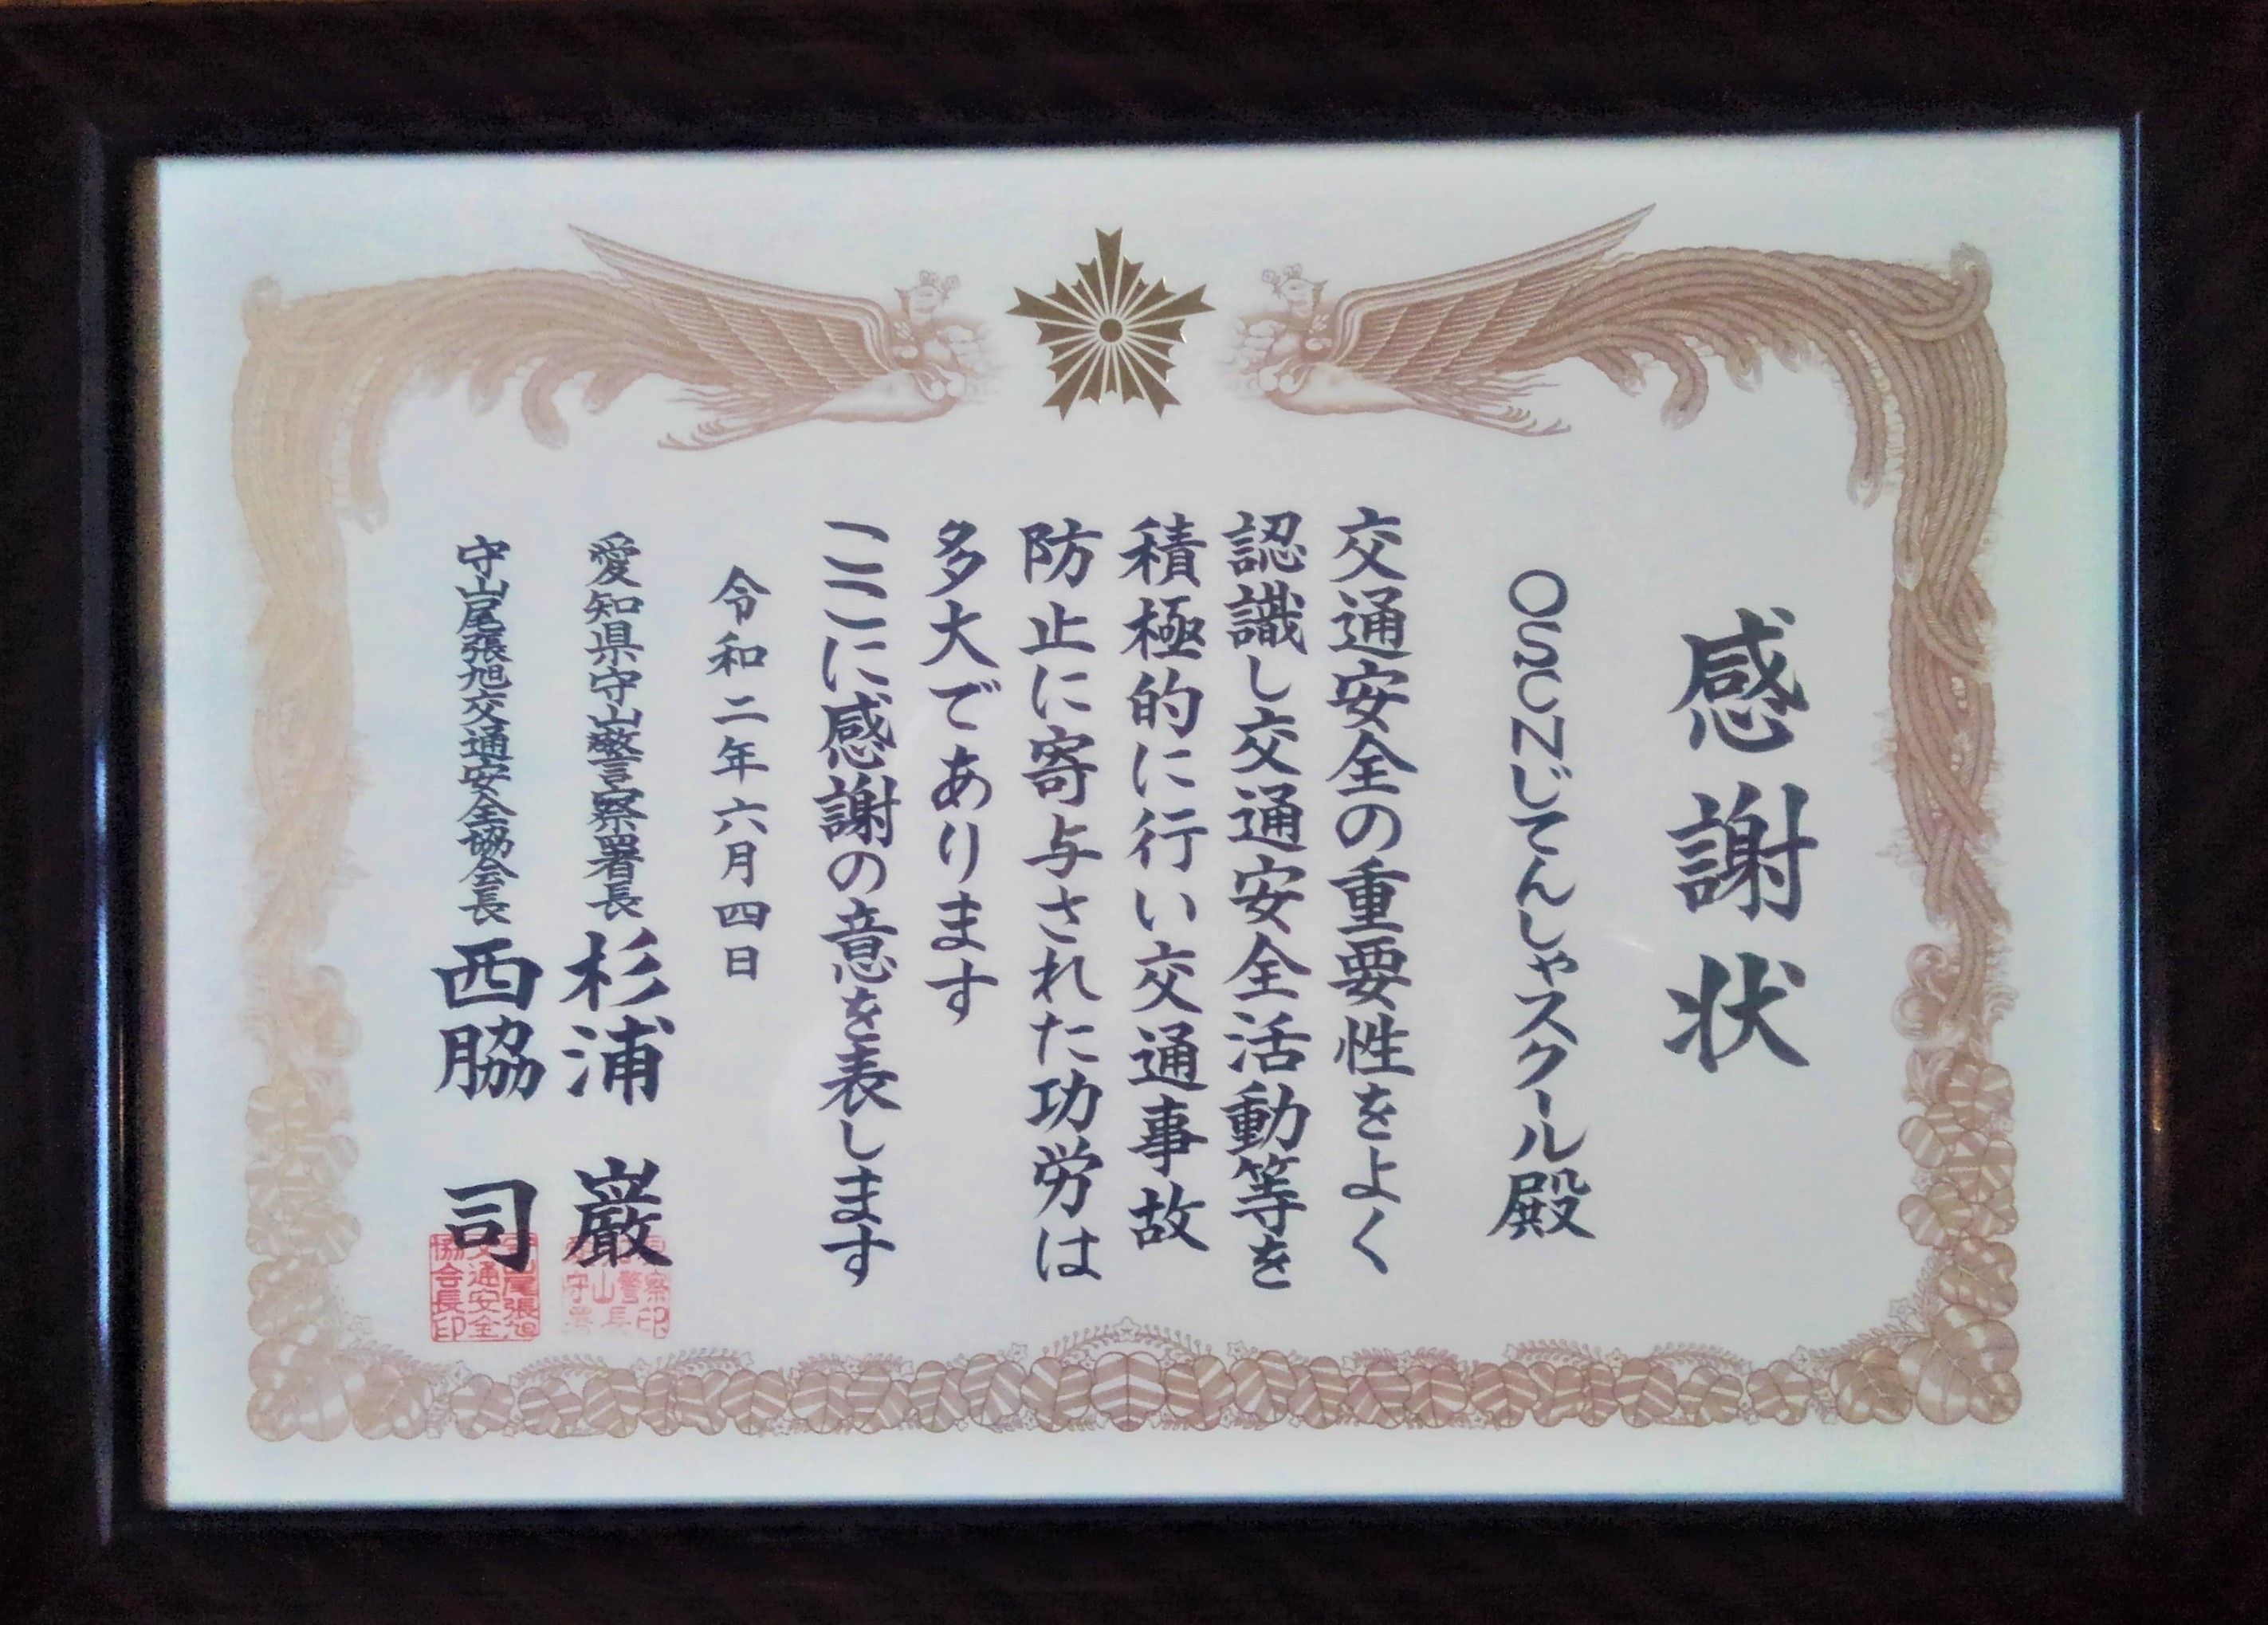 感謝状
OSCNじてんしゃスクール殿
交通安全の重要性をよく
認識し交通安全活動等を
積極的に行い交通事故
防止に寄与された功労は
多大であります
ここに感謝の意を表します
令和二年六月四日
愛知県守山警察署長 杉浦 巌
守山尾張旭交通安全協会長 西脇 司
守山尾張旭
交通安全
協会長印